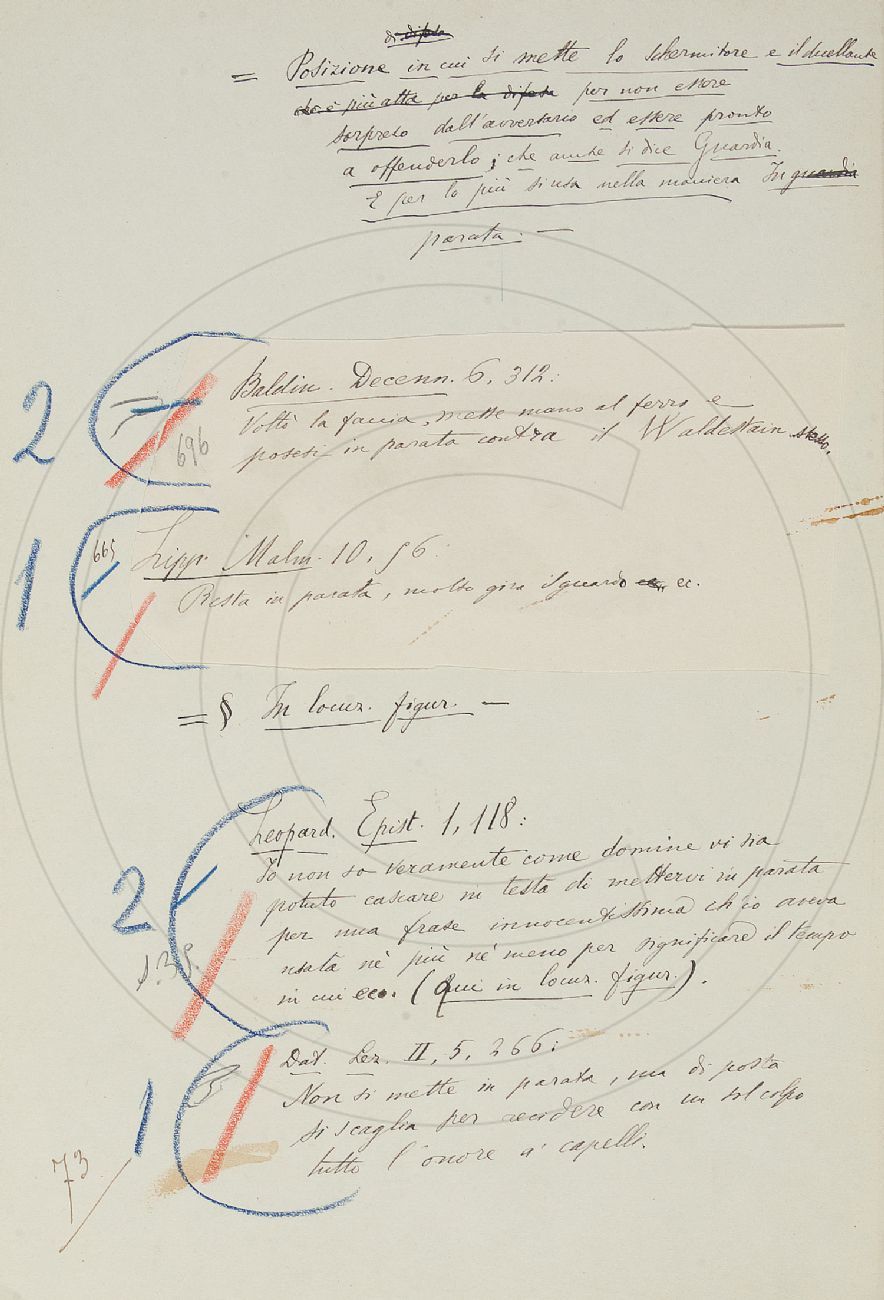 di difesa
= Posizione in cui si mette lo schermitore e il duellante
che è più atta per la difesa per non essere
sorpreso dall'avversario ed essere pronto
a offenderlo; che anche si dice Guardia.
E per lo più si usa nella maniera In guardi
parata. —
2
Baldin. Decenn. 6, 312:
Voltò la faccia, messe mano al ferro e
posesi in parata contra il Waldestain stesso.
696
1
665
Lipp. Malm. 10, 56:
Resta in parata, molto gira il guardo ec.
= § In locuz. figur. —
2
Leopard. Epist. 1, 118:
Io non so veramente come domine vi sia
potuto cascare in testa di mettervi in parata
per una frase innocentissima ch'io aveva
usata nè più nè meno per significare il tempo
in cui ecc. (Qui in locuz. figur.).
1
Dat. Lez. II, 5, 266:
Non si mette in parata, ma di posta
si scaglia per recidere con un sol colpo
tutto l'onore a' capelli.
73